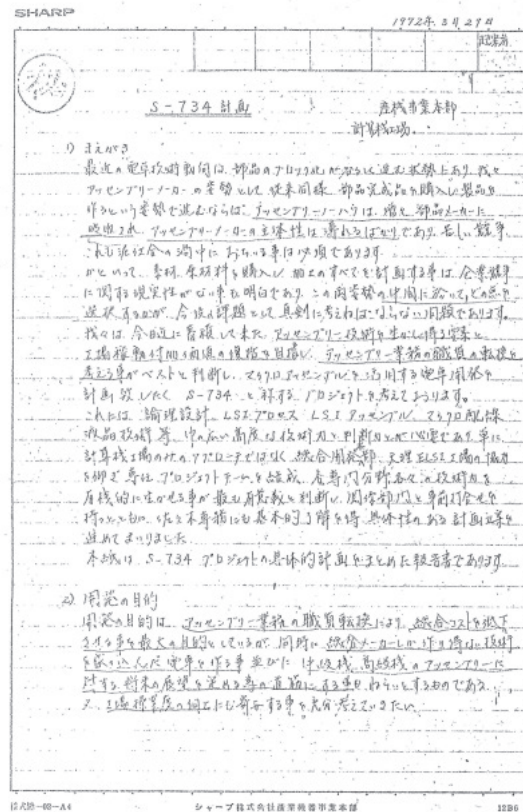 SHARP
1972年.3月29日
秘
S-734計画
産機事業本部
計算機工場
1) まえがき
最近の電卓技術動向は、部品のブロック化がますます進む状勢にあり、我々
アッセンブリーメーカーの姿勢として従来同様、部品完成品を購入し製品を
作るという姿勢で進むならば、アッセンブリーノーハウは、増々部品メーカーに
吸収され、アッセンブリーメーカーの主体性は薄れるばかりであり、苦しい競争
におちいる事は必須であります。
かといって、素材、原材料を購入し、加工のすべてを計画する事は、企業競争
に関する現実性がない事も明白であり、この両姿勢の中間に於いて、どの点を
選択するかが、今後の課題として真剣に考えねばならない問題であります。
我々は、今日迄に蓄積して来た、アッセンブリー技術を生かし得る
工場稼動 を目標に、アッセンブリー業務の職質の転換を
考える事がベストと判断し、マクロアッセンブルを活用する電卓開発を
計画致したく S-734 と称するプロジェクトを考えております。
これには、論理設計、LSIプロセス LSIアッセンブル、マクロ配線
液晶技術等、巾の広い高度な技術力と判断力とが必要であり、単に
計算機工場のみのアプローチではなく、総合開発部、天理ELSI工場の協力
を仰ぎ専任プロジェクトチームを結成、各専門分野各々の技術力を
有機的に生かせる事が最も有益と判断し、関係部門と事前打合せを
持つとともに、佐々木専務にも基本的了解を得、具体性のある計画立案を
進めてまいりました。
本紙は S-734 プロジェクトの具体的計画をまとめた報告書であります
2) 開発の目的
開発の目的は、アッセンブリー業務の職質転換により、総合コストを低下
させる事を最大の目的としているが、同時に、総合メーカーしか作り得ない技術
を盛り込んだ電卓を作る事並びに中級機、高級機のアッセンブリーに
対する、将来の展望を定める為の にする事をねらいとするものである。
又、工場操業度への向上にも寄与する事を充分考えていきたい。
シャープ株式会社産業機器事業本部
12B6